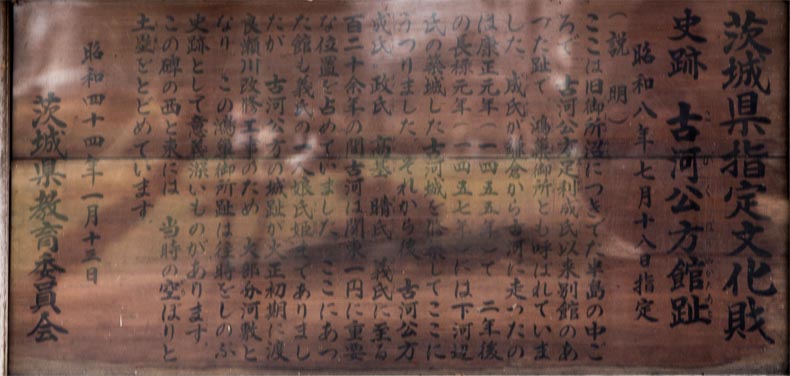 茨城県指定文化財
史跡 古河公方館趾
こがくぼうやかたあと
昭和八年七月十八日指定
（説 明）
ここは旧御所沼につきでた半島の中ご
ろで 古河公方足利成氏以来別館のあ
つた趾で 鴻巣御所とも呼ばれていま
した 成氏が鎌倉から古河に走ったの
は康正元年（一四五五年）で 二年後
の長禄元年（一四五七年）には下河辺
氏の築城した古河城を してここに
うつりました それから後 古河公方
成氏 政氏 高基 晴氏 義氏に至る
百二十余年の間古河は関東一円に重要
な位置を占めていました ここにあつ
た館も義氏の 娘氏姫まてありまし
たが 古河公方の城趾が大正初期に渡
良瀬川改修工事のため 大部分河敷と
なり この鴻巣御所趾は往時をしのぶ
史跡として意義深いものがあります
この碑の西と東には 当時の空ぼりと
土塁をとどめています
昭和四十四年一月十三日
茨城県教育委員会